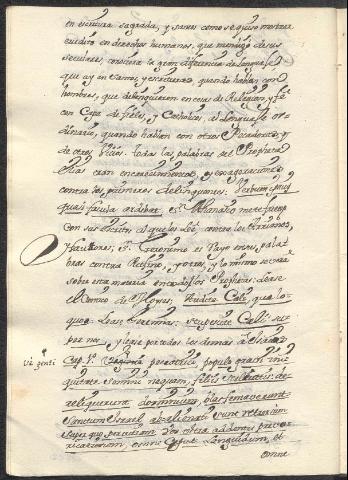 en escritura sagrada, y sanos como se quiso mostrar
erudito en derechos humanos, que mendigó de sus
seculares, conociera la gran diferencia de lenguaje
que ay en Santos, y escrituras, quando hablan con
hombres, que delinquieron en cosas de Religion, y fé
con Capa de fieles, y Catholicos, al lenguaje or
dinario, quando hablan con otros Pecadores, y
de otros Vicios. todas las palabras del Propheta
Elias eran encarecimientos y exageraciones
contra los primeros delinquentes: Verbum illius
quasi facula ardebat. S. Athanasio
con sus escritos al que los leé contra los Arrianos,
y fautores; S. Geronimo es Rayo en sus palab
bras contra Rufino, y otros, y lo mismo se verá
sobre esta materia en todos los Prophetas: lease
el Cantico de Moyses: Audite Cæli, quæ lo
quor. Lease Jeremias: obstupescite Cæli su
per hoc. y leese por todos los demas à Isaias
Væ genti
Cap. 1. peccatrici, populo gravi ini
quitate, semini nequam, filiis sceleratis: de
reliquerunt dominum, blasfemaverunt
Sanctum Israel, abalienati sunt retrorsum
super quo percutiam vos ultra addentes præva
ricationem, omne Caput languidum, et
omne